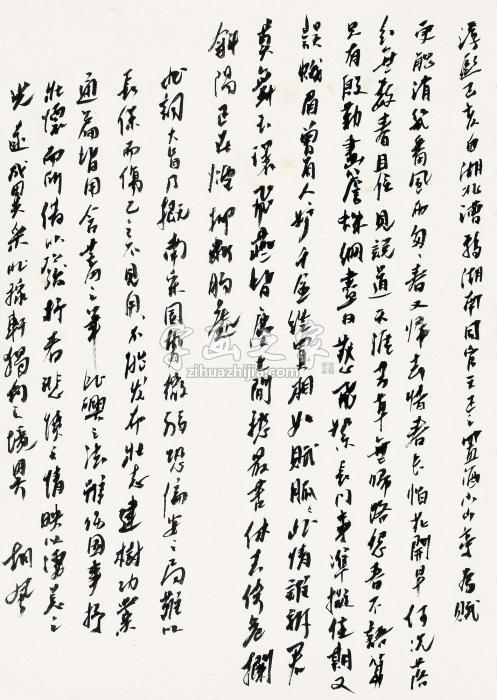 淳熙己亥自湖北漕移湖南同官王正之置酒小山亭為賦
更能消幾番風雨匆匆春又歸去惜春長怕花開早何況落
紅無數春且住見說道天涯芳草無歸路怨春不語算
只有殷勤畫簷蛛網盡日惹飛絮長門事準擬佳期又
誤蛾眉曾有人妒千金縱買相如賦脈脈此情誰訴君
莫舞玉環飛燕皆塵土閒愁最苦休去倚危闌
斜陽正在煙柳斷腸處
此詞大旨乃概南宋國勢微弱恐偏安之局難以
長保而傷己之不見用不能發奮壯志建樹功業
通篇皆用含蓄之筆比興之法雖傷國事抒
壯懷而所借以發抒者悲悽之情映以淒美之
光遂成異彩此稼軒獨創之境
字画之家
zihuazhijia.com